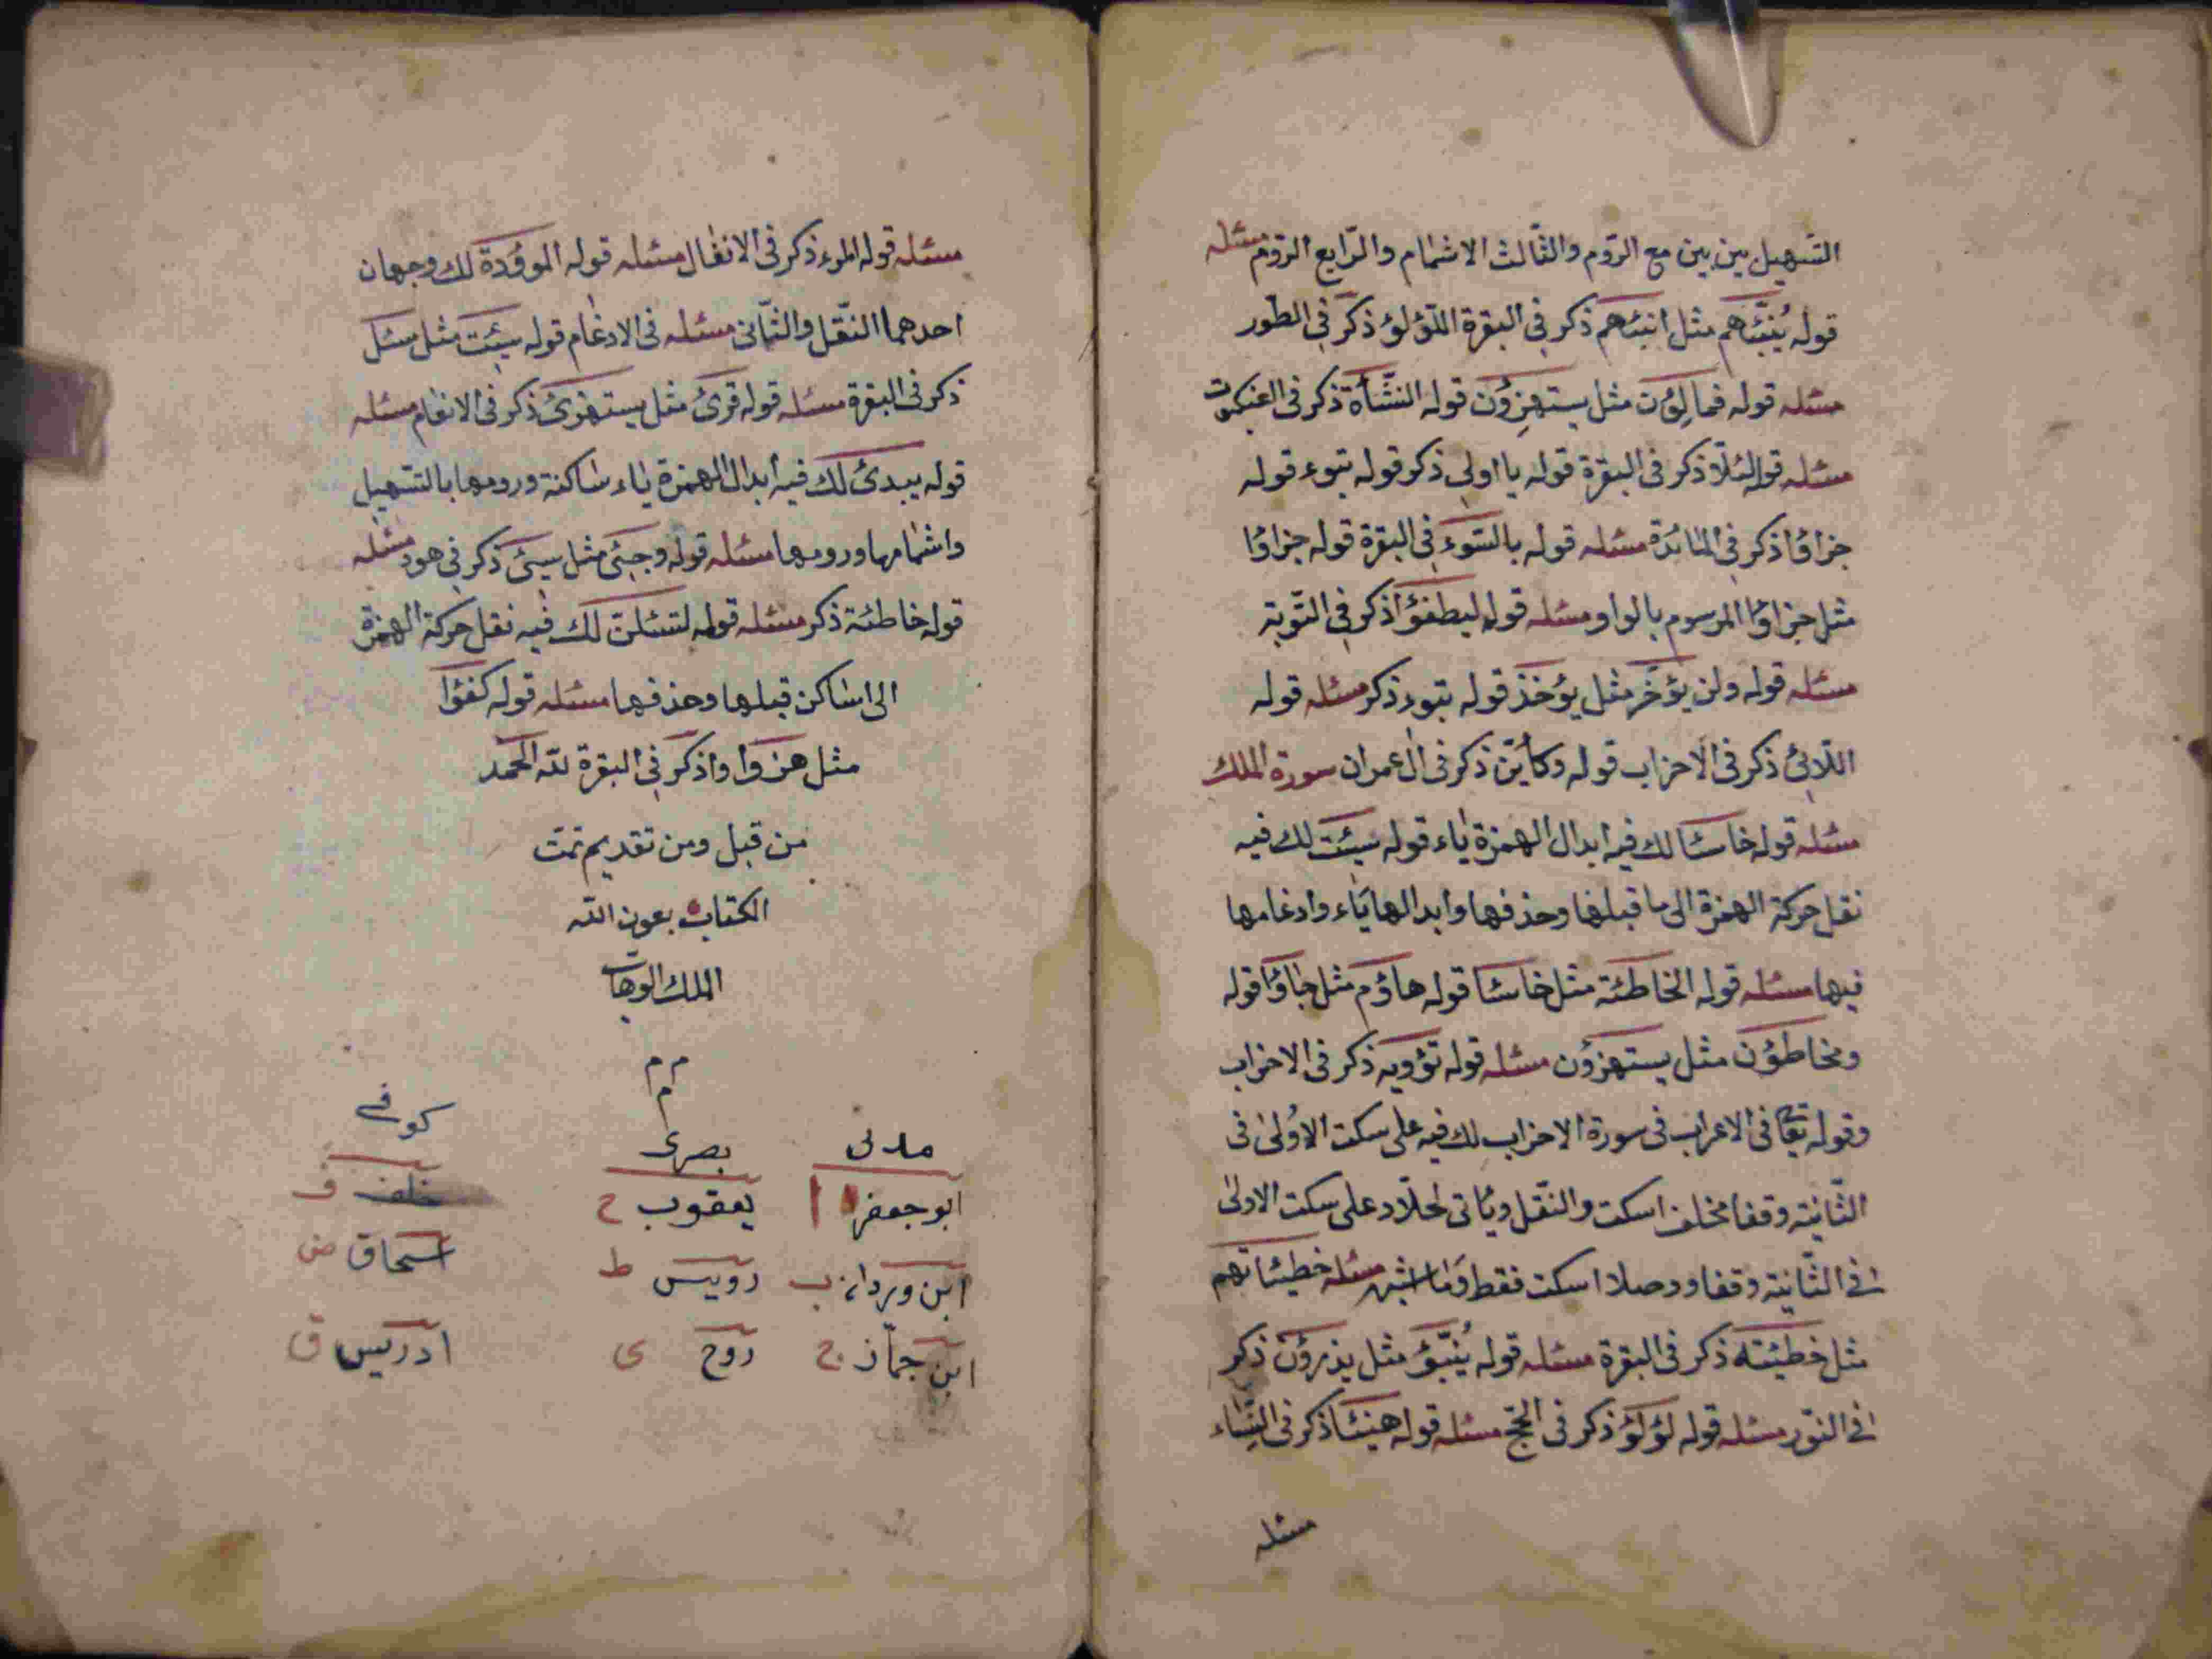 التسهيل بين بين مع الروم والثالث الاشمام والرابع الروم مسئله
قوله يُنبّئهم مثل انبئهم ذكر في البقرة اللؤلؤ ذكر في الطور
مسئله قوله فمالؤن مثل يستهزؤن قوله النشأة ذكر في العنكبوت
مسئله قوله لئلا ذكر في البقرة قوله يا اولى ذكر قوله تبوء قوله
جزاؤا ذكر في المائدة مسئله قوله بالسوء في البقرة قوله جزاؤا
مثل جزاؤا المرسوم بالواو مسئله قوله ليطفؤا ذكر في التوبة
مسئله قوله ولن يؤخر مثل يؤخذ قوله تبوء ذكر مسئله قوله
اللائى ذكر في الاحزاب قوله وكأيّن ذكر فى ال عمران سورة الملك
مسئله قوله خاسئا لك فيه ابدال الهمزة ياء قوله سيئت لك فيه
نقل حركة الهمزة الى ما قبلها وحذفها وابدالها ياء وادغامها
فيها مسئله قوله الخاطئة مثل خاسئا قوله هاؤم مثل جاؤا قوله
وخاطؤن مثل يستهزؤن مسئله قوله تؤويه ذكر فى الاحزاب
وقوله تعا فى الاعراب فى سورة الاحزاب لك فيه على سكت الاولى فى
الثانية وقفا مخلف اسكت والنقل وياتى لخلاد على سكت الاولى
في الثانية وقفا ووصلا اسكت فقط مسئله خطيئاتهم
مثل خطيئته ذكر فى البقرة مسئله قوله يُنبّؤ مثل يذرؤن ذكر
في النور مسئله قوله لؤلؤ ذكر فى الحج مسئله قوله هنيئا ذكر فى النساء
مسئله
مسئله قوله المرء ذكر فى الانفال مسئله قوله الموؤدة لك وجهان
احدهما النقل والثانى مسئله فى الادغام قوله سيئت مثل سئل
ذكر فى البقرة مسئله قوله قرئ مثل يستهزئ ذكر فى الانعام مسئله
قوله يبدئ لك فيه ابدال الهمزة ياء ساكنة ورومها بالتسهيل
واشمامها ورومها مسئله قوله وجيئ مثل سيئ ذكر فى هود مسئله
قوله خاطئة ذكر مسئله قوله لتسئلن لك فيه نقل حركة الهمزة
الى اساكن قبلها وحذفها مسئله قوله كفؤا
مثل هزؤا واذكر فى البقرة لله الحمد
من قبل ومن تقديم تمت
الكتاب بعون الله
الملك الوهاب
م م
م
مدنى بصرى كوفى
ابو جعفر ا يعقوب ح خلف ف
ابن وردان ب رويس ط اسحاق ض
ابن جماز ج روح ى ادريس ق